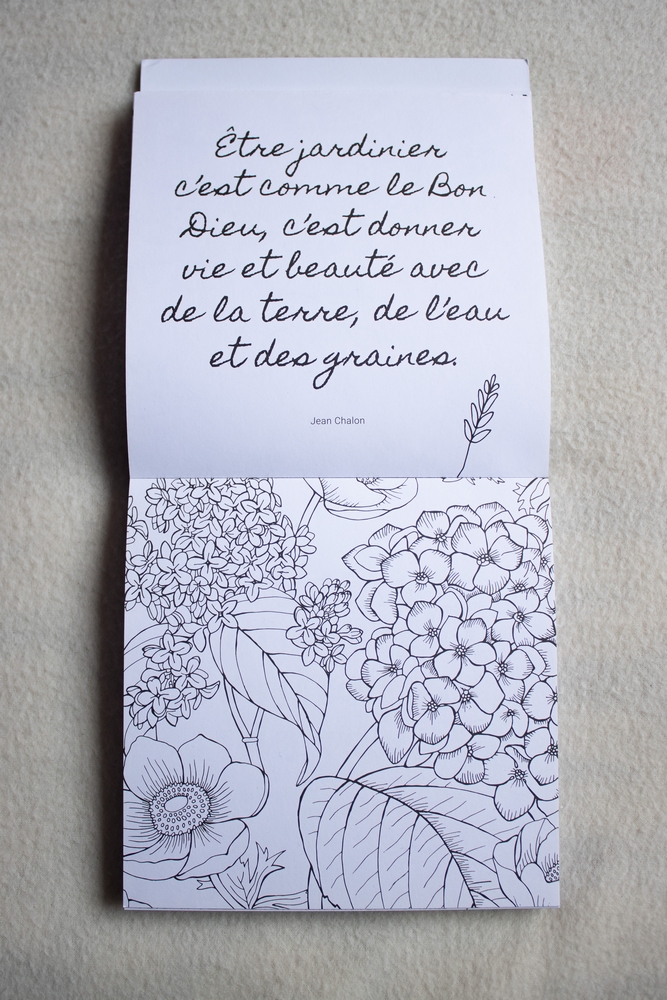 Être jardinier
c'est comme le Bon
Dieu, c'est donner
vie et beauté avec
de la terre, de l'eau
et des graines.
Jean Chalon